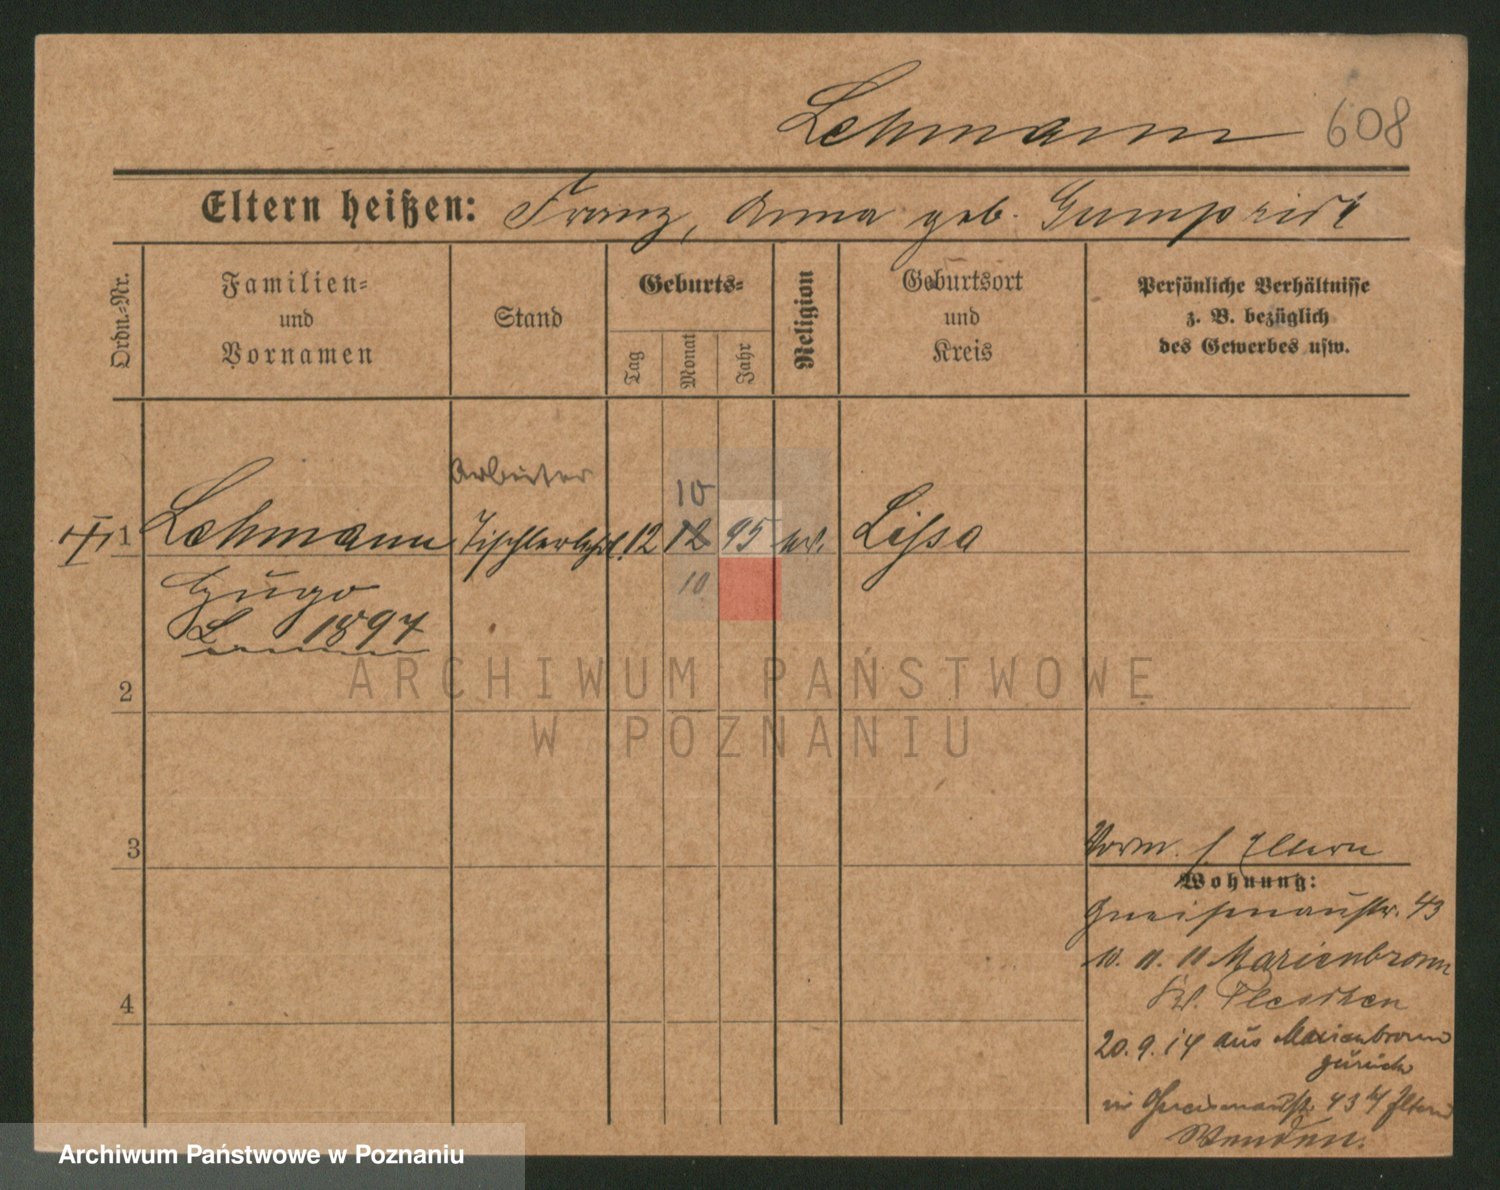 Lehmann 608
Eltern heißen: Franz, Anna geb.
Ordn.-Nr.
Familien-
und
Vornamen
Stand
Geburts-
Tag
Monat
Jahr
Religion
Geburtsort
und
Kreis
Persönliche Verhältnisse
z. B. bezüglich
des Gewerbes usw.
Arbeiter
10
1 Lehmann Tischlerlehrl. 12 12 95 ev. Lissa
10
Hugo
L 1897
2
3
4
Vorm. s. Eltern
Wohnung:
Gneisenaustr. 43
10. 11. 11 Marienbronn
Kr. Pleschen
20. 9. 14 aus Marienbronn
zurück
in Gneisenaustr. 43 b/ Eltern
Wenden.
ARCHIWUM PAŃSTWOWE
W POZNANIU
Archiwum Państwowe w Poznaniu